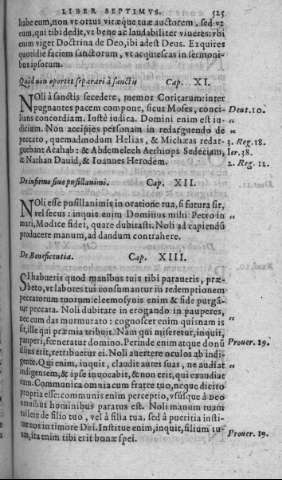 LIBER SEPTIMVS. 525
habe eum, non vt ortus vitæque tuæ auctorem, sed vt
eum, qui tibi dedit, vt bene ac laudabiliter viueres: vbi
enim viget Doctrina de Deo, ibi adest Deus. Exquires
quotidie faciem sanctorum, vt acquiescas in sermoni-
bus ipsorum.
Quòd non oportet separari à sanctis Cap. XI.
Noli à sanctis secedere, memor Coricarum: inter
pugnantes pacem compone, sicut Moses, conci- Deut.10.
lians concordiam. Iustè iudica. Domini enim est iu- „
dicium. Non accipies personam in redarguendo de „
peccato, quemadmodum Helias, & Michæas redar- 3. Reg.18.
guebant Achab: & Abdemelech Aethiops Sedeciam, Ier.38.
& Nathan Dauid, & Ioannes Herodem. 2. Reg. 12.
De infirmo siue pusillanimi. Cap. XII.
Noli esse pusillanimis in oratione tua, si futura sit,
vel secus: inquit enim Dominus mihi Petro in
mari, Modice fidei, quare dubitasti. Noli ad capiendũ „
producere manum, ad dandum contrahere.
De Beneficentia. Cap. XIII.
Si habueris quod manibus tuis tibi paraueris, præ-
beto, vt labores tui consumantur in redemptionem
peccatorum tuorum: eleemosynis enim & fide purgã-
tur peccata. Noli dubitare in erogando in pauperes,
nec cum das murmurato: cognosces enim quisnam is „
sit, ille qui præmia tribuit. Nam qui miseretur, inquit,
pauperi, fœneratur domino. Perinde enim atque donũ Prouer.19.
illius erit, retribuetur ei. Noli auertere oculos ab indi-
gente. Qui enim, inquit, claudit aures suas, ne audiat „
indigentem, & ipse inuocabit, & non erit, qui exaudiat „
eum. Communica omnia cum fratre tuo, neque dicito
propria esse: communis enim perceptio, vsusque à Deo
omnibus hominibus paratus est. Noli manum tuam
tollere de filio tuo, vel à filia tua, sed à pueritia insti-
tue eos in timore Dei. Institue enim, inquit, filium tu- „
um, ita enim tibi erit bonæ spei. Prouer. 19.